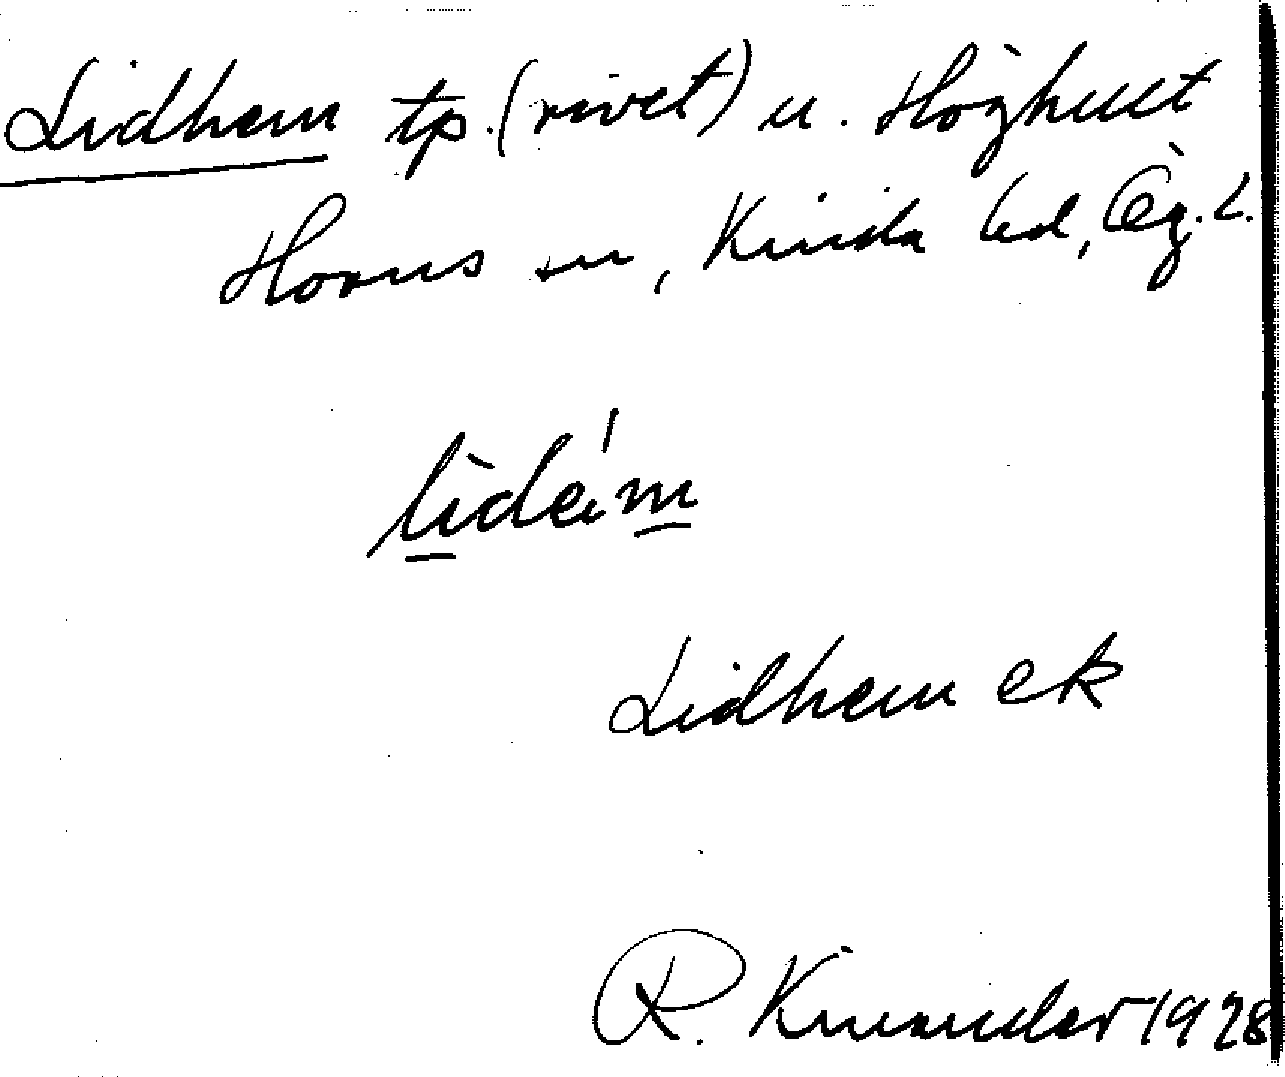 Lidhem tp. (rivet) u. Höghult
Horns sn, Kinda hd, Ög. L.
lidém
Lidhem ek
R. Kinander 1928